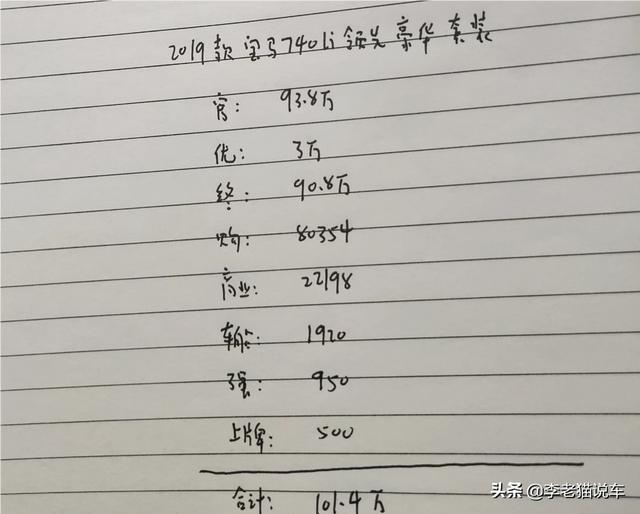 2019款宝马740li领先豪华套装
官: 93.8万
优: 3万
终: 90.8万
购: 80354
商业: 22198
车船: 1920
强: 950
上牌: 500
合计: 101.4万
头条 @李老猫说车